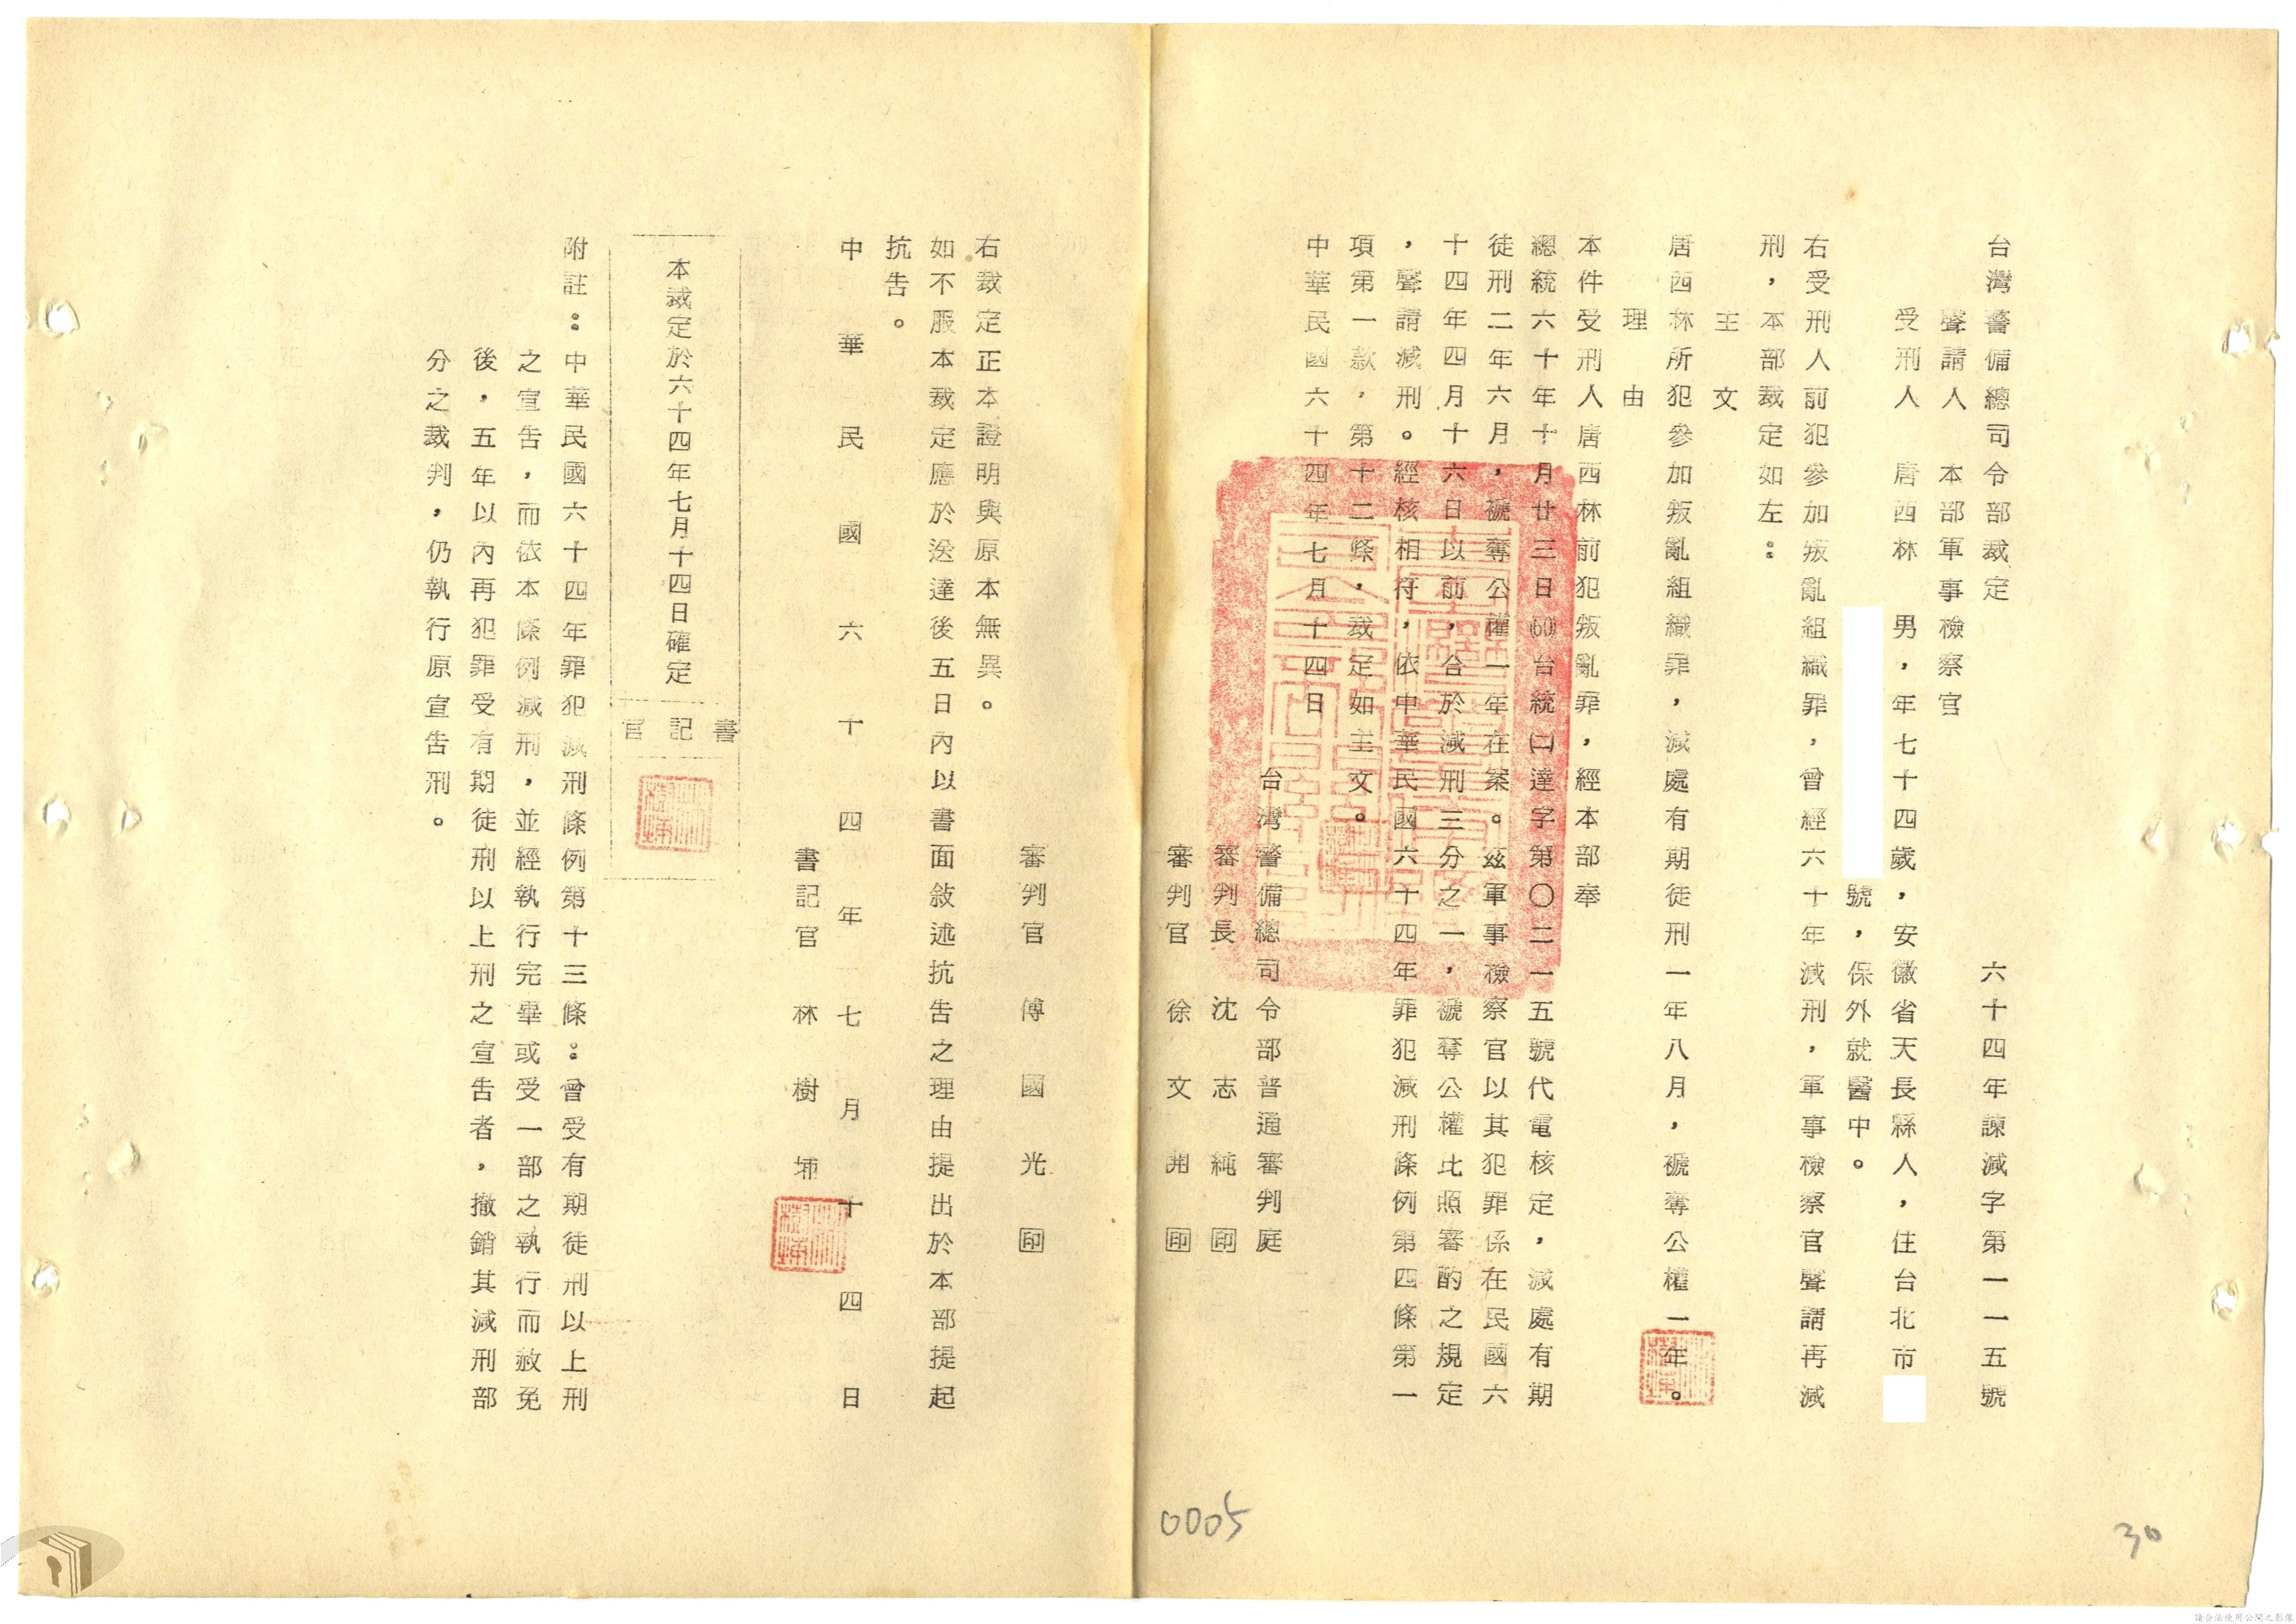 台灣警備總司令部裁定　六十四年諫減字第一一五號
聲請人　本部軍事檢察官
受刑人　唐西林　男，年七十四歲，安徽省天長縣人，住台北市
號，保外就醫中。
右受刑人前犯參加叛亂組織罪，曾經六十年減刑，軍事檢察官聲請再減
刑，本部裁定如左：
主　文
唐西林所犯參加叛亂組織罪，減處有期徒刑一年八月，褫奪公權一年。
理　由
本件受刑人唐西林前犯叛亂罪，經本部奉
總統六十年十月廿三日(60)台統(二)達字第〇二一五號代電核定，減處有期
徒刑二年六月，褫奪公權一年在案。茲軍事檢察官以其犯罪係在民國六
十四年四月十六日以前，合於減刑三分之一，褫奪公權比照審酌之規定
，聲請減刑。經核相符，依中華民國六十四年罪犯減刑條例第四條第一
項第一款，第十二條，裁定如主文。
中華民國六十四年七月十四日
台灣警備總司令部普通審判庭
審判長　沈志純　印
審判官　徐文開　印
審判官　傅國光　印
右裁定正本證明與原本無異。
如不服本裁定應於送達後五日內以書面敘述抗告之理由提出於本部提起
抗告。
中華民國六十四年七月十四日
書記官　林樹埔
本裁定於六十四年七月十四日確定
書記官
附註：中華民國六十四年罪犯減刑條例第十三條：曾受有期徒刑以上刑
之宣告，而依本條例減刑，並經執行完畢或受一部之執行而赦免
後，五年以內再犯罪受有期徒刑以上刑之宣告者，撤銷其減刑部
分之裁判，仍執行原宣告刑。
0005
30
請合法使用公開之影像